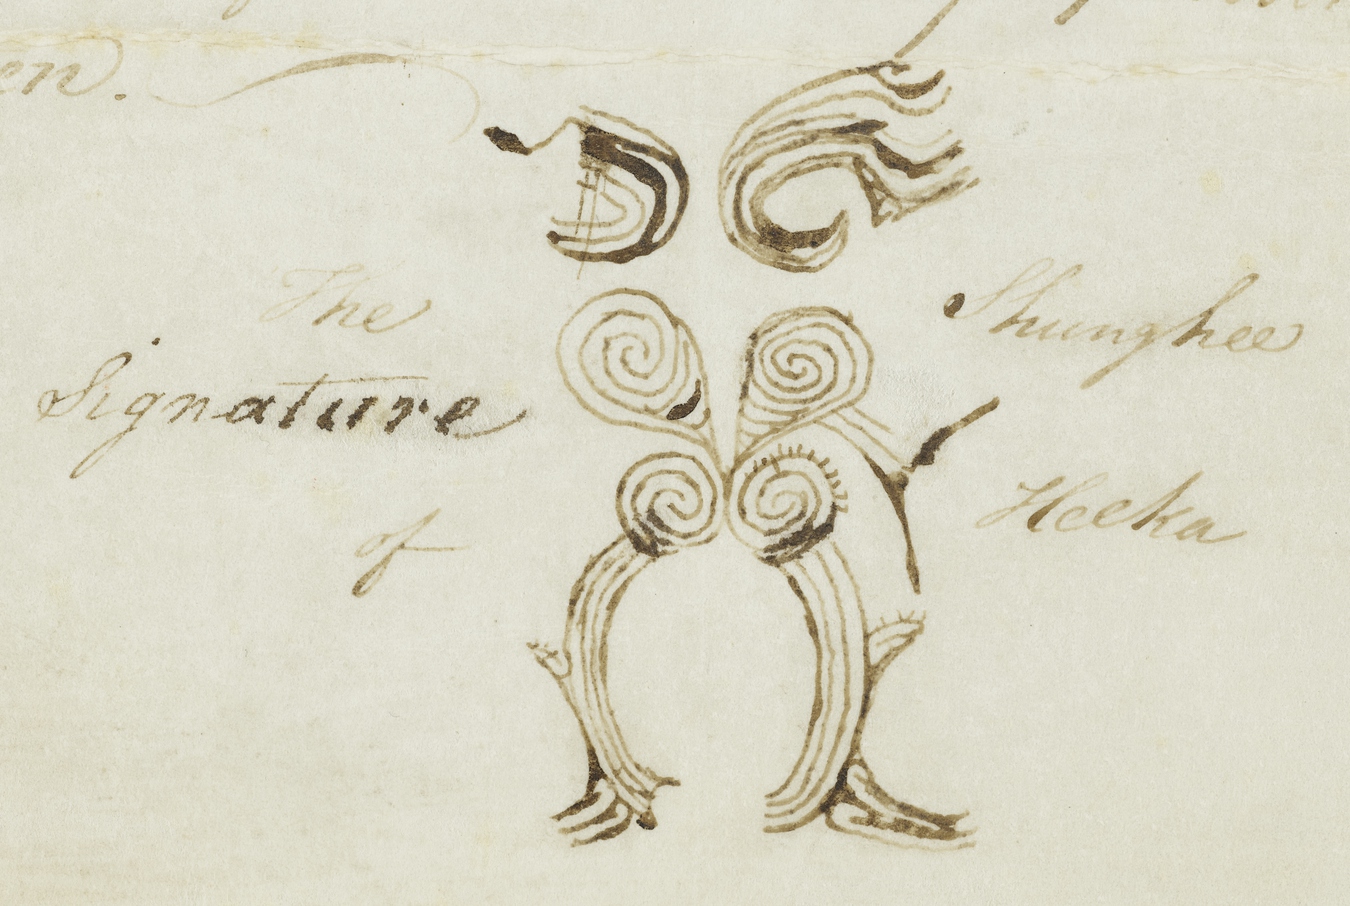 en.
The
Signature
of
Shunghee
Heeka